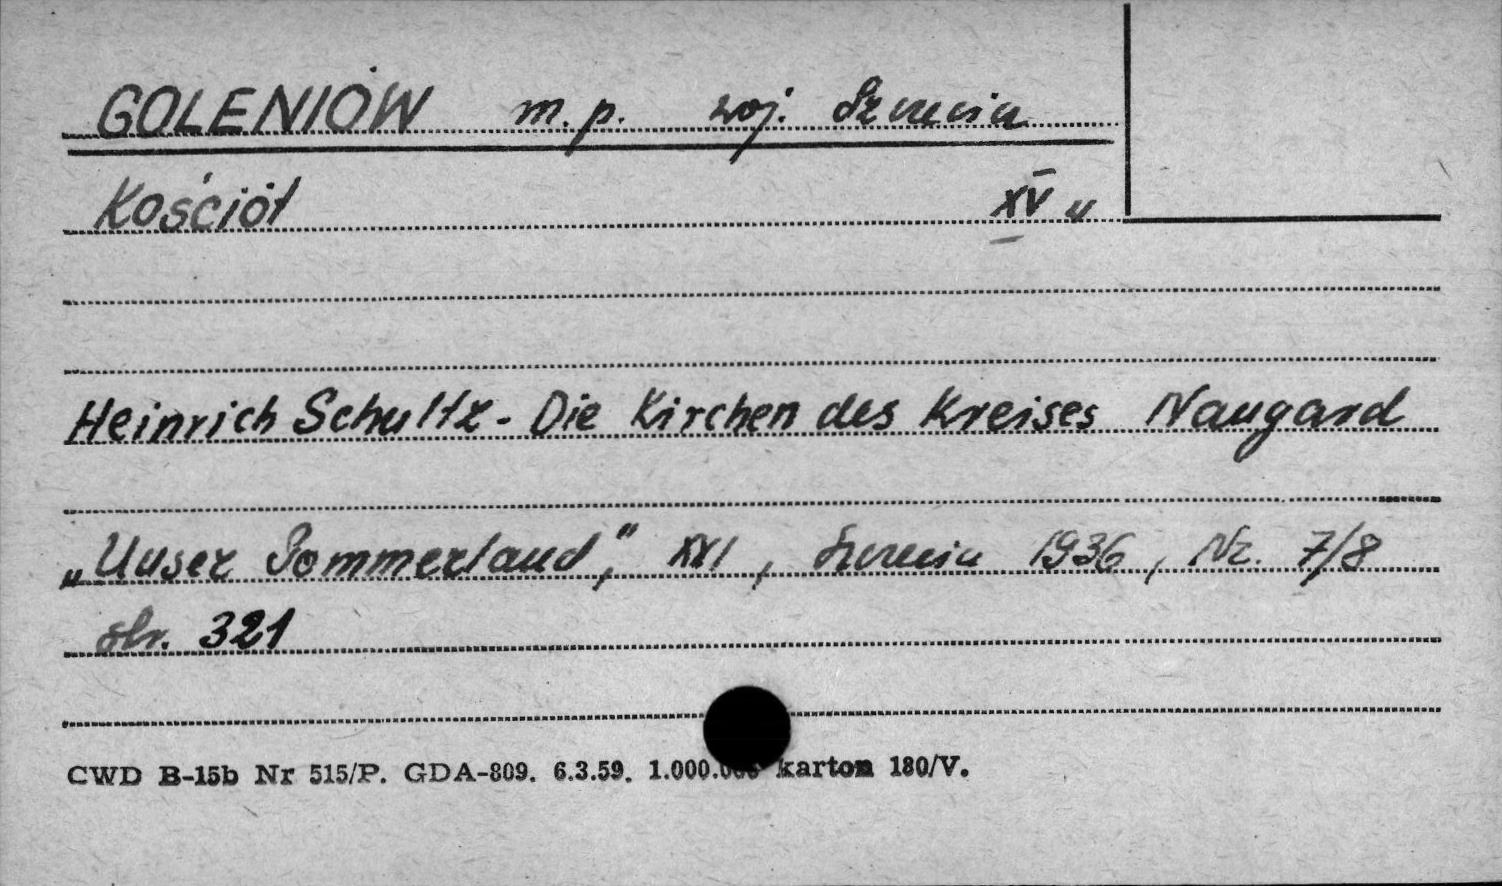 GOLENIÓW m.p. woj. Szczecin
Kościół XV w
Heinrich Schultz - Die Kirchen des Kreises Naugard
„Unser Pommerland", XXI, Szczecin 1936, Nr. 7/8
str. 321
CWD B-15b Nr 515/P. GDA-809. 6.3.59. 1.000.000 karton 180/V.